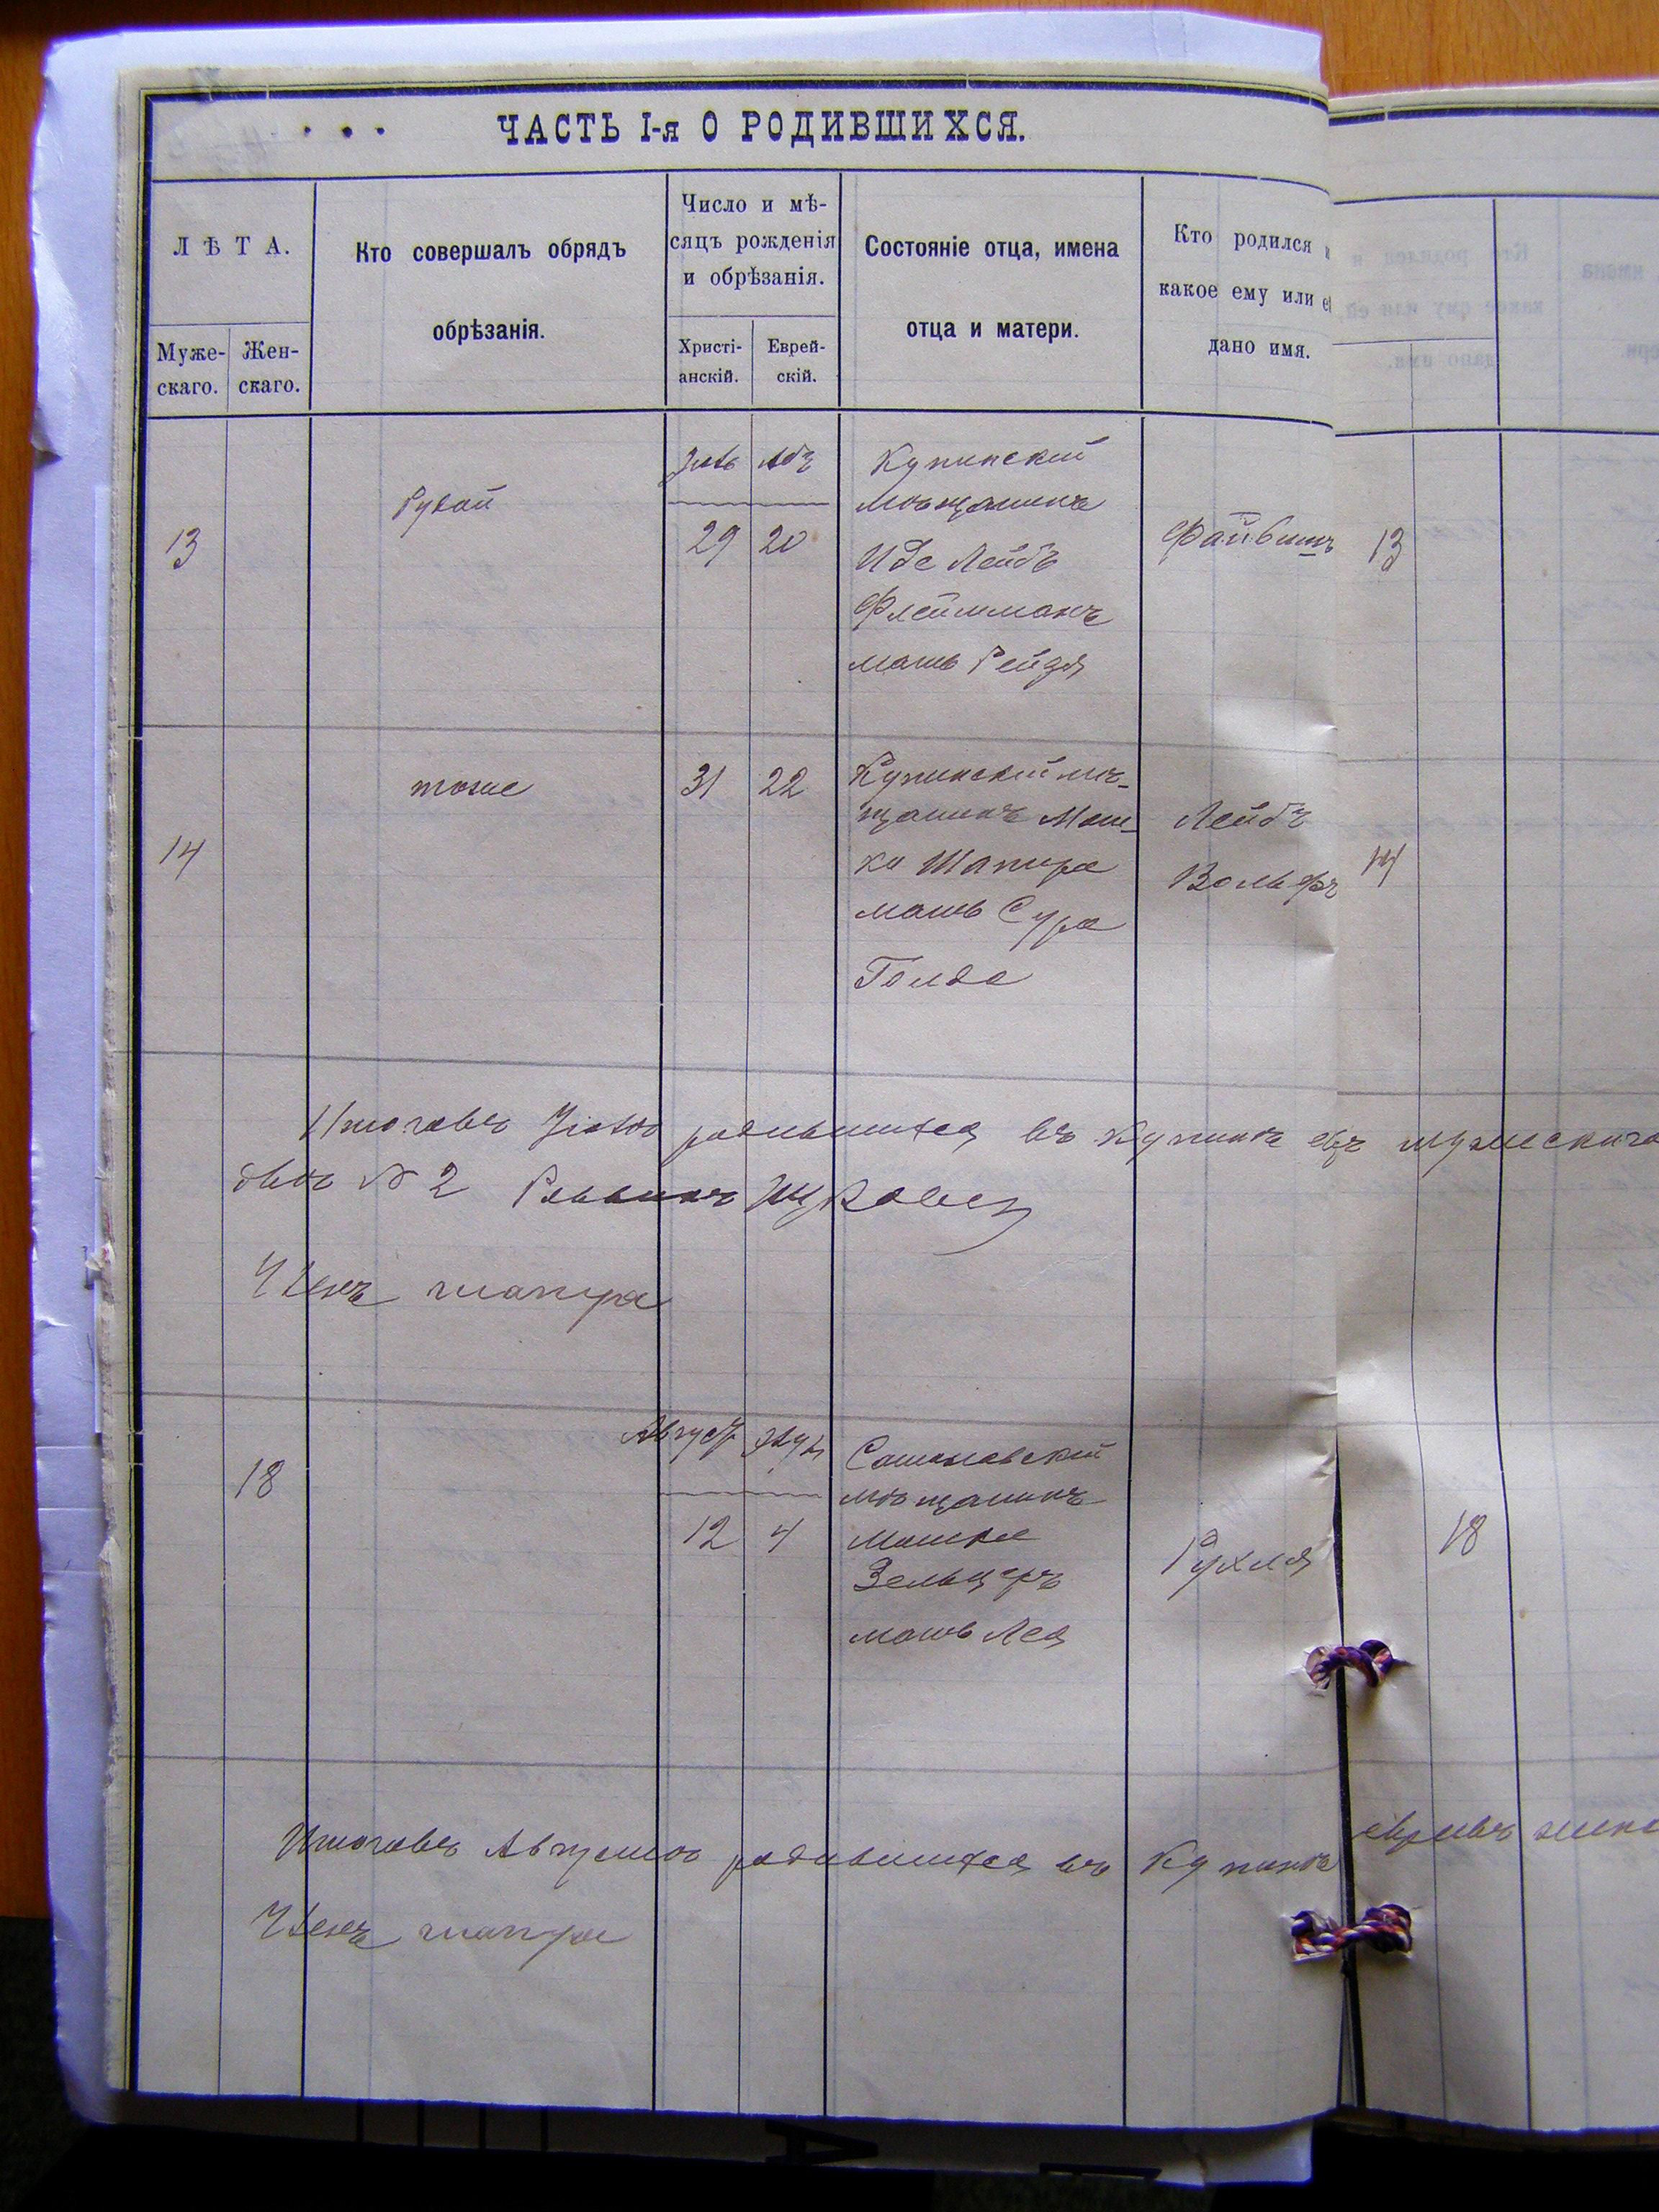 ЧАСТЬ I-я О РОДИВШИХСЯ.
ЛѢТА.
Муже-
скаго.
Жен-
скаго.
Кто совершалъ обрядъ
обрѣзанія.
Число и мѣ-
сяцъ рожденія
и обрѣзанія.
Христі-
анскій.
Еврей-
скій.
Состояніе отца, имена
отца и матери.
Кто родился и
какое ему или ей
дано имя.
13
29
20
Купинский
мѣщанинъ
Иде Лейбъ
Флейшманъ
мать Рейзя
Файвишъ
13
14
тоже
31
22
Купинский мѣ-
щанинъ Мош-
ко Шапира
мать Сура
Голда
Лейбъ
Вольфъ
14
Итого въ Іюлѣ родившихся въ Купинѣ мужескаго
двое № 2 Раввинъ
Членъ шапира
18
Август
12
4
Сатановский
мѣщанинъ
Мошко
Зельцеръ
мать Лея
Рухля
18
Итого въ Августѣ родившихся въ Купинѣ
Членъ шапира